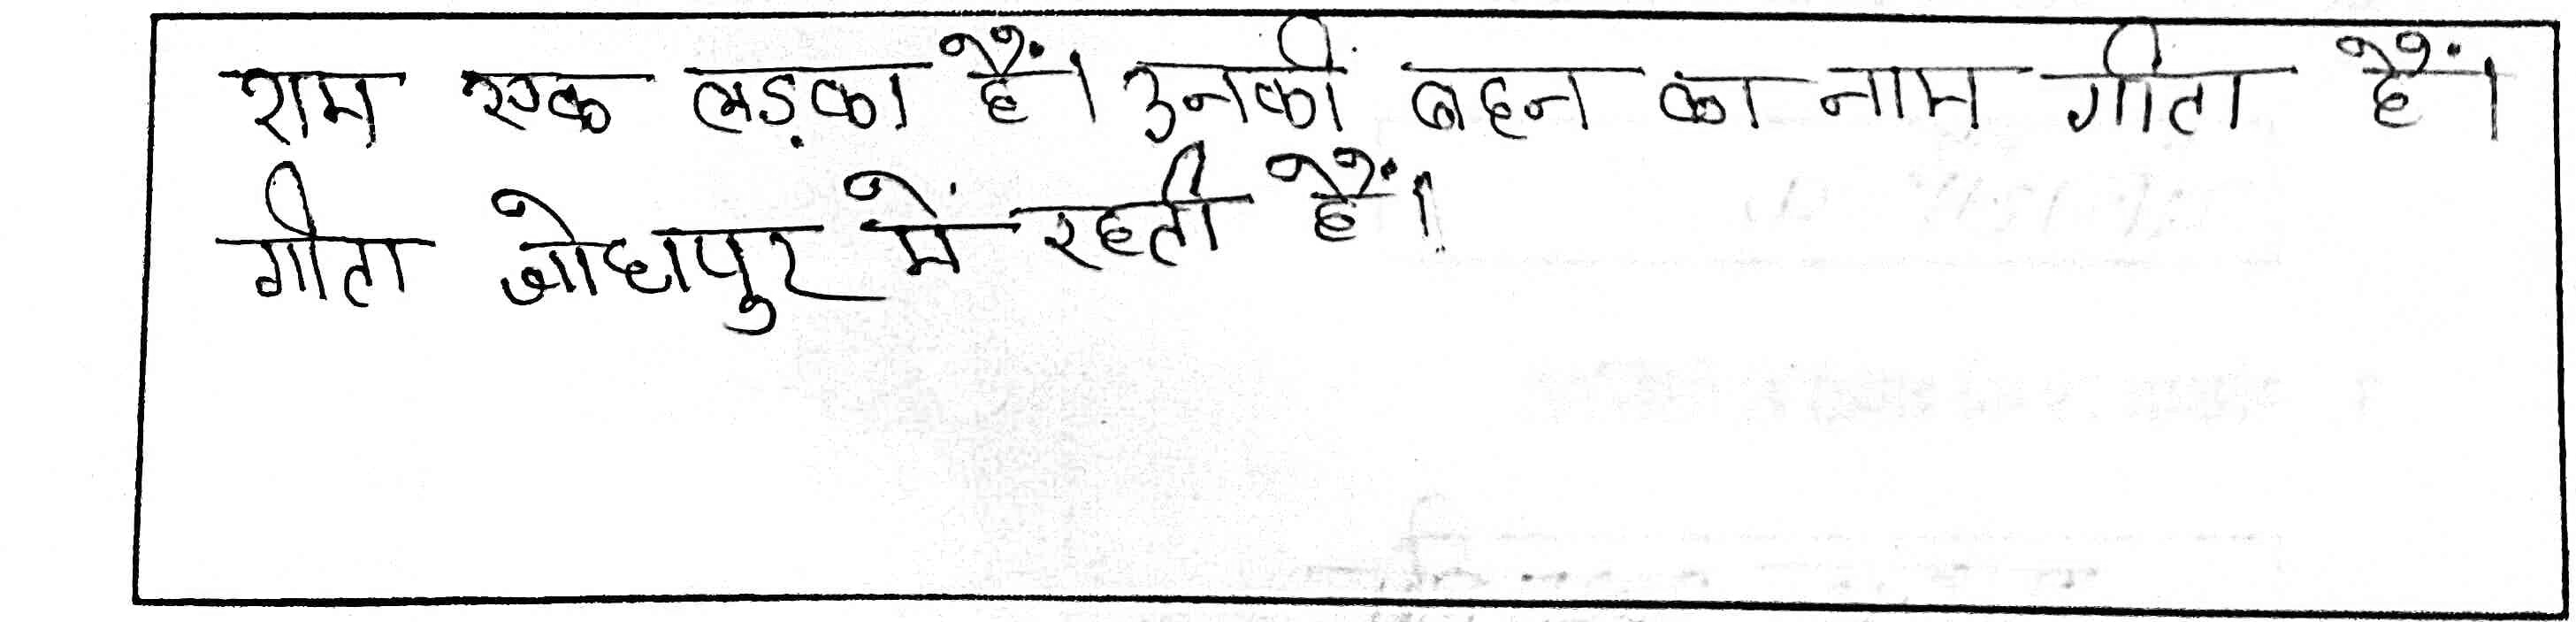 राम एक लड़का हैं। उनकीं बहन का नाम गीता हैं।
गीता जोधपुर में रहती हैं।